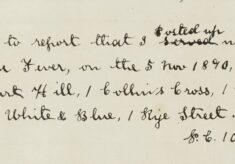 to report that I posted up
Fever, on the 5 Nov 1890,
Hill, 1 Collins Cross, 1
White & Blue, 1 Rye Street.